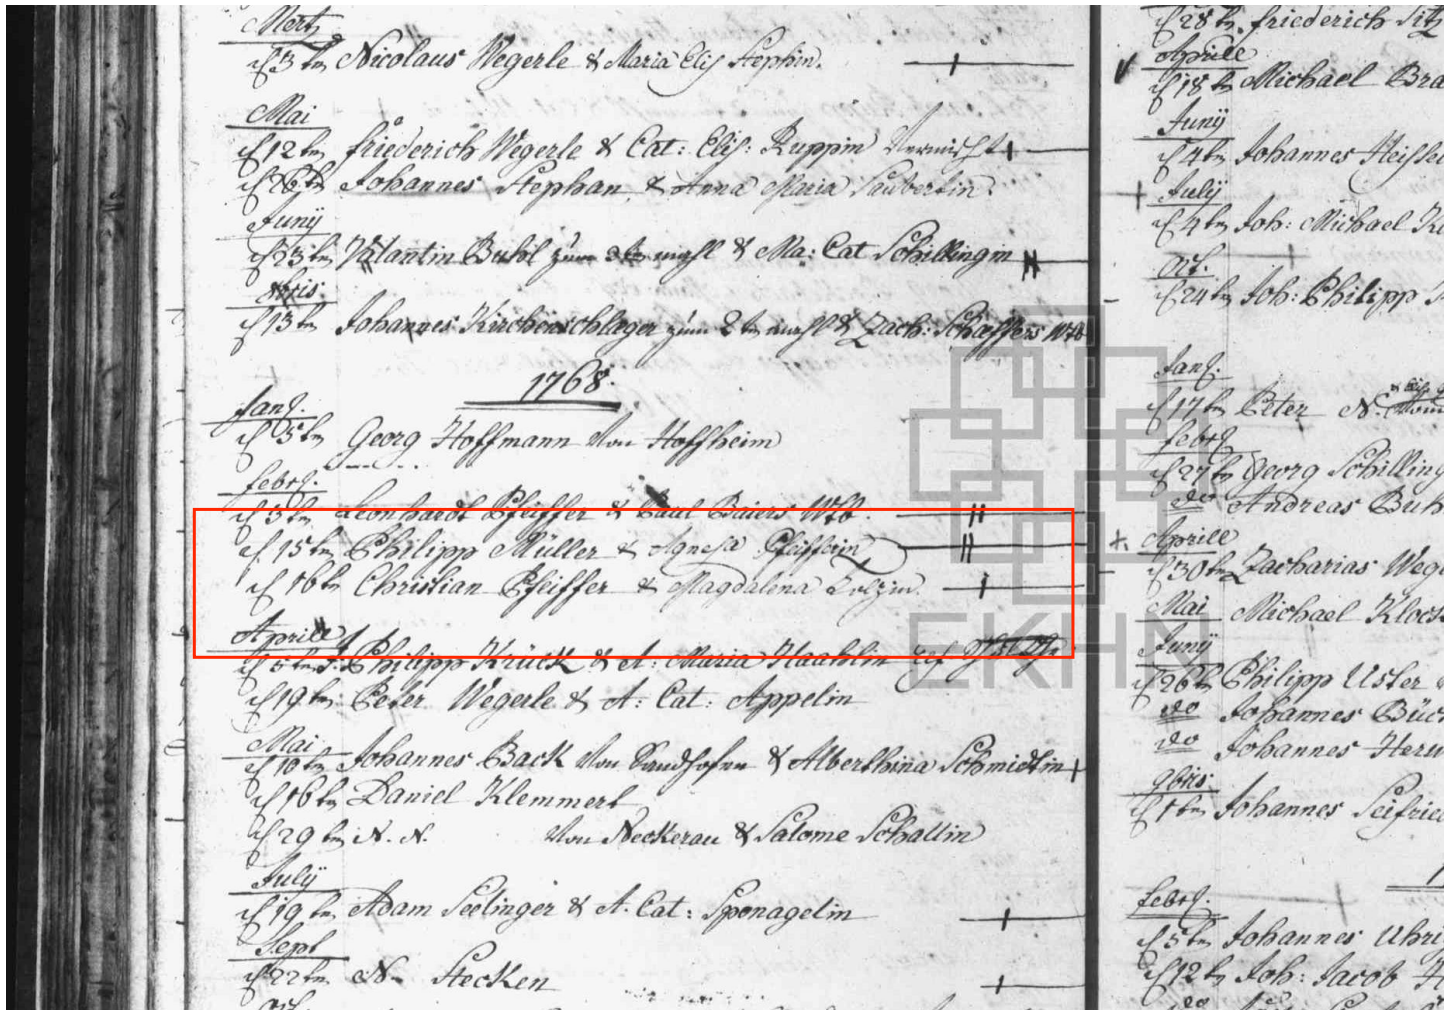 Mertz
d 3 tn Nicolaus Wegerle & Maria Elis Stephin.
Mai
d 12 tn friederich Wegerle & Cat: Elis: Ruppin
d 26 tn Johannes Stephan & Anna Maria Saubertin.
Junÿ
d 23 tn Valantin Buhl zum & Ma: Cat Schillingin
d 13 tn Johannes Kirchenschlager zum 2 tn & Zach: Schæffers Wtb
1768.
Janŋ.
d 5 tn Georg Hoffmann Von Hoffheim
febrŋ.
d 3 tn Leonhardt Pfeiffer & Paul Baiers Wtb.
d 15 tn Philipp Müller & Agnesa Pfeifferin
d 16 tn Christian Pfeiffer & Magdalena
Aprill
d 5 tn Philipp Krück & A: Maria
d 19 tn Peter Wegerle & A: Cat: Appelin
Mai
d 10 tn Johannes Back Von Sandhofen & Alberthina Schmidtin
d 16 tn Daniel Klemmert
d 29 tn N. N. Von Neckerau & Salome Schallin
Julÿ
d 19 tn Adam Seelinger & A. Cat: Sponagelin
Sept
d 22 tn N. Stecken
d 28 tn friederich
Aprill
d 18 tn Michael
Junÿ
d 4 tn Johannes
Julÿ
d 4 tn Joh: Michael
Oct.
d 24 tn Joh: Philipp
Janŋ.
d 17 tn Peter N.
febrŋ
d 27 tn Georg Schilling
do Andreas
Aprill
d 30 tn Zacharias
Mai Michael
Junÿ
d 26 tn Philipp Uster
do Johannes
do Johannes
9bris
d 1 tn Johannes
febrŋ.
d 5 tn Johannes
d 12 tn Joh: Jacob
do
EKHN